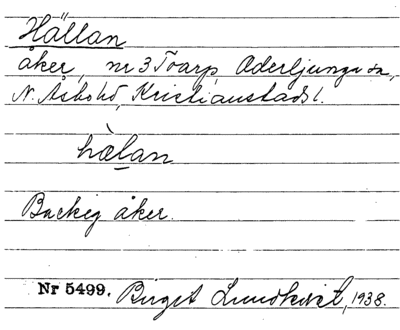 Hällan
åker, nr 3 Toarp, Oderljunga sn,
N. Åsbohd, Kristianstads l.
hælan
Backig åker.
Nr 5499. Birgit Lundkvist, 1938.